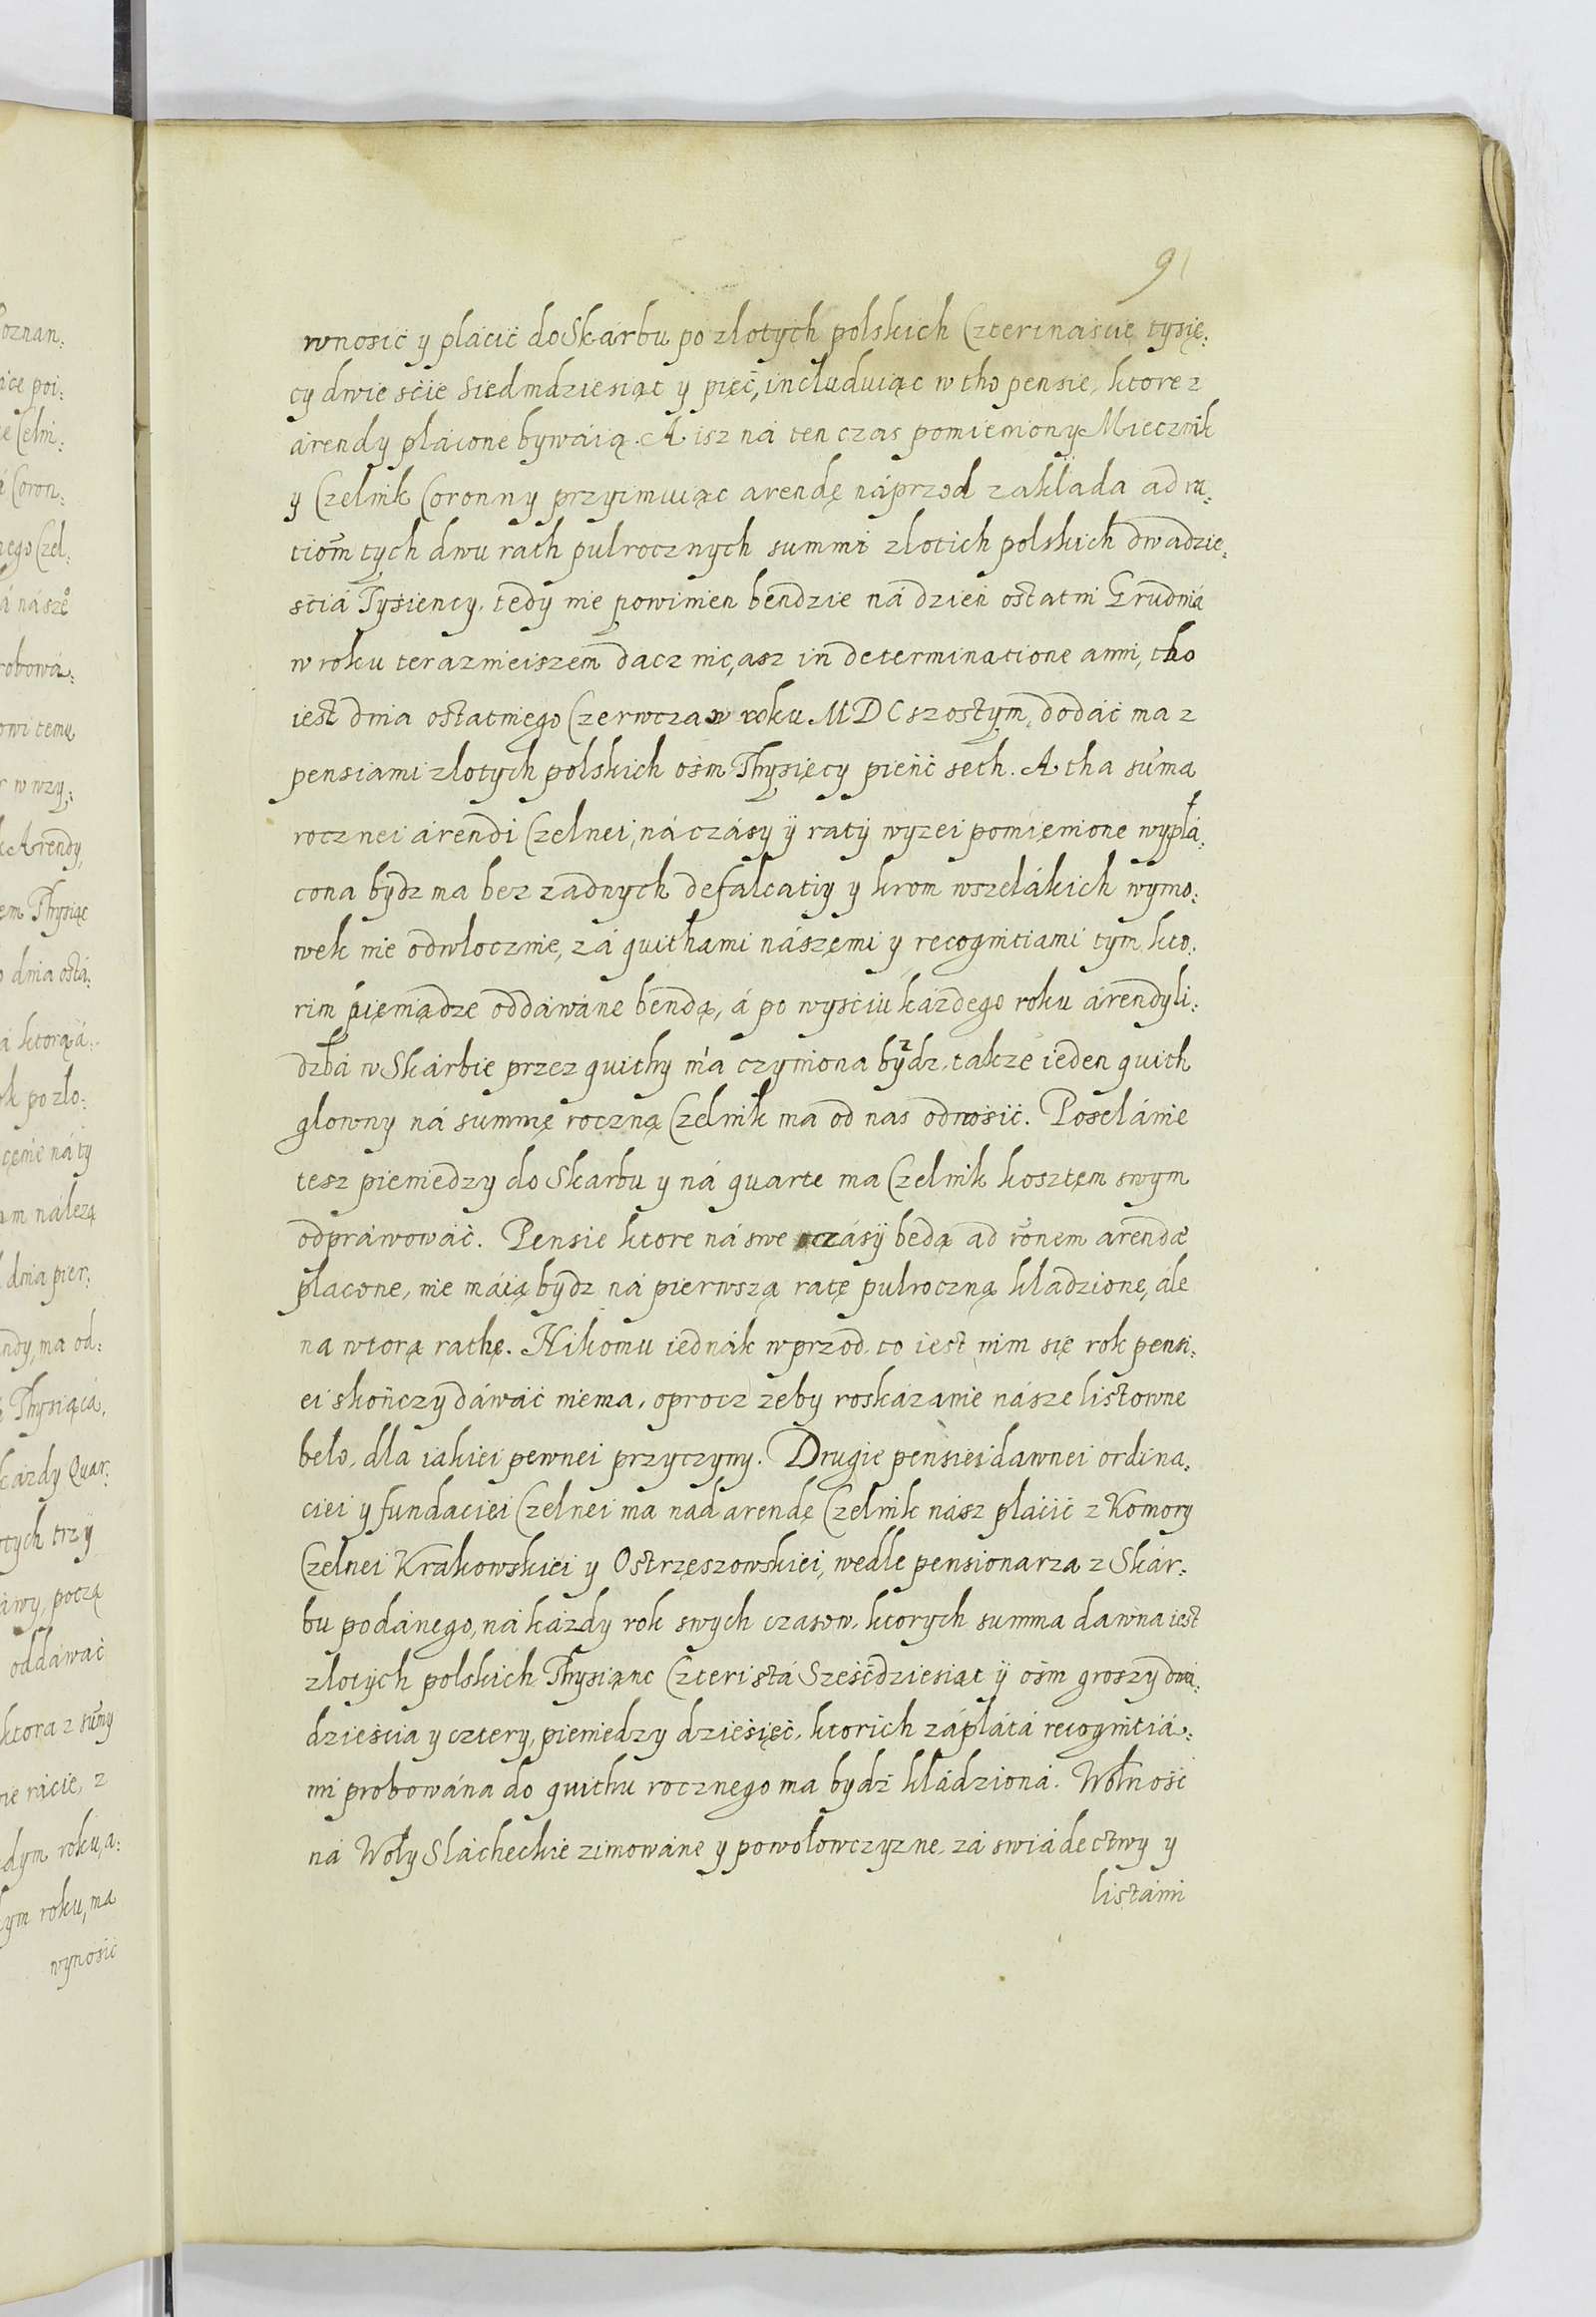 91
wnosić y płácić do Skárbu po złotych polskich Czterinaście tysię:
cy dwie ście Siedmdziesiąt y pięć, includuiąc w tho pensie, ktore z
árendy płácone bywáią. A isz ná ten czas pomieniony Miecznik
y Czelnik Coronny przyimuiąc arendę náprzod zakłada ad ra:
tiom tych dwu rath pulrocznych summi złotich polskich dwadzie:
sćiá Tysiency, tedy nie powinien bendzie ná dzień ostatni Grudniá
w roku teraznieiszem dacz nic, asz in determinatione anni, tho
iest dnia ostatniego Czerwcza w roku MDC szostym, dodáć ma z
pensiami złotych polskich ośm Thysięcy pieńć seth. A tha suma
rocznei árendi Czelnei, ná czásy ÿ ratÿ wyzei pomięnione wypłá:
cona bydz ma bez zadnych defalcatiy y krom wszelákich wymo:
wek nie odwłocznie, zá quithami nászęmi y recognitiami tym kto:
rim pięniądze oddáwáne bendą, á po wyśćiu káżdego roku árendy li:
dzbá w Skárbie przez quithy ma czyniona bydz, takze ieden quith
głowny ná summę roczną Czelnik ma od nas odnośić. Posełánie
tesz pieniedzy do Skarbu y ná quarte ma Czelnik kosztęm swym
odpráwowáć. Pensie ktore ná swe czásÿ bedą ad ronem arendæ
płacone, nie máią bydz ná pierwszą ratę pulroczną kładzione, ále
na wtorą rathę. Nikomu iednák wprzod, to iest nim się rok pensi:
ei skończy dáwáć niema, oprocz zeby roskázanie násze listowne
beło, dla iakiei pewnei przyczyny. Drugie pensiei dawnei ordina:
ciei y fundaciei Czelnei ma nad arendę Czelnik nász płáćić z Komory
Czelnei Krakowskiei y Ostrzęszowskiei, wedle pensionarza z Skár:
bu podánego, ná káżdy rok swych czasow, ktorych summa dawna iest
złotych polskich Thysiąnc Czteristá Sześćdziesiąt ÿ ośm groszy dwá:
dzieścia y cztery, pieniedzy dzieśięć, ktorich zápłátá recognitiá:
mi probowána do quithu rocznego ma bydź kłádzioná. Wolność
ná Woły Sláchećkie zimowáne y powołowczyzne, zá swiádectwy y
listámi